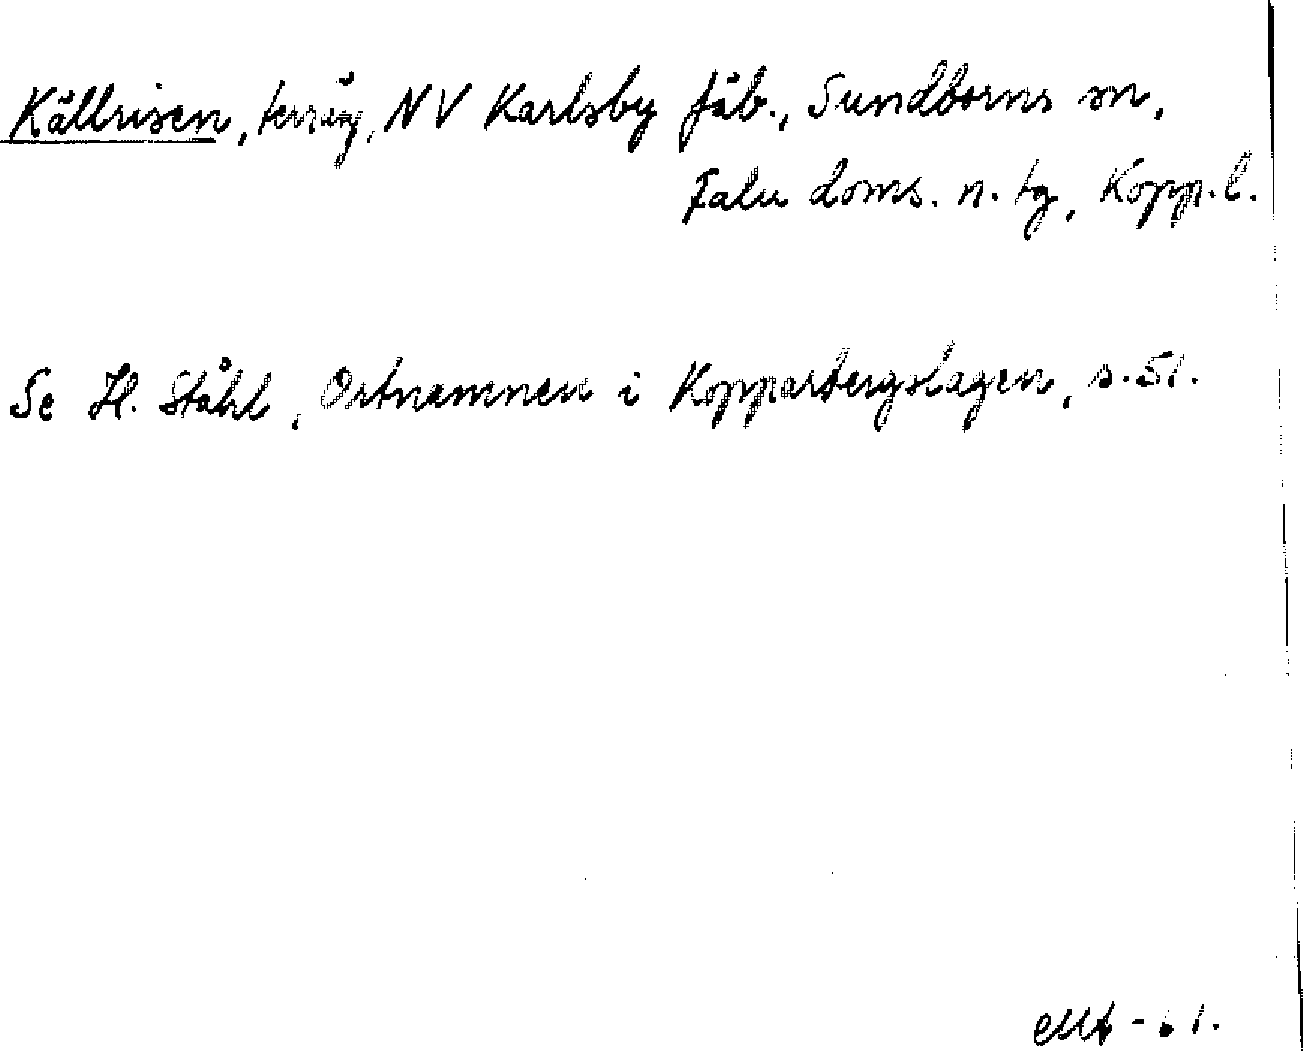 Källrisen, terräng, NV Karlsby fäb., Sundborns sn,
Falu doms. n. tg, Kopp. l.
Se H. Ståhl, Ortnamnen i Kopparbergslagen, s. 51.